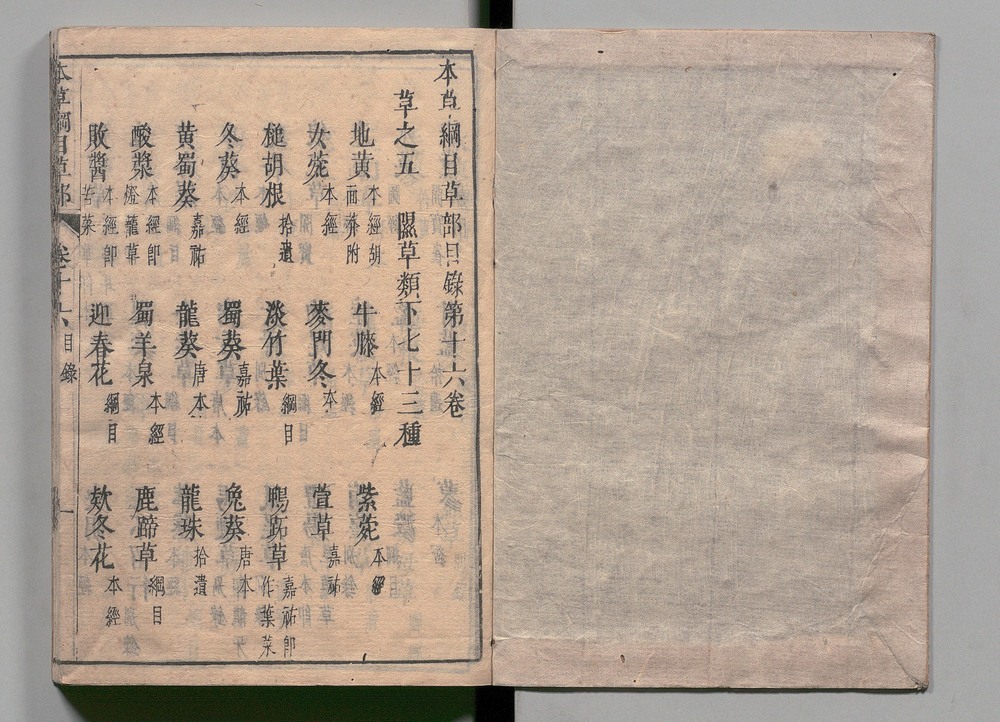 本草綱目草部目錄第十六卷
草之五 隰草類下七十三種
地黃 本經胡面莾附 牛膝 本經 紫菀 本經
女菀 本經 麥門冬 本 萱草 嘉祐
槌胡根 拾遺 淡竹葉 綱目 鴨跖草 嘉祐即作葉菜
冬葵 本經 蜀葵 嘉祐 兔葵 唐本
黃蜀葵 嘉祐 龍葵 唐本 龍珠 拾遺
酸漿 本經即燈籠草 蜀羊泉 本經 鹿蹄草 綱目
敗醬 本經即苦菜 迎春花 綱目 欵冬花 本經
本草綱目草部 卷十六 目錄 一